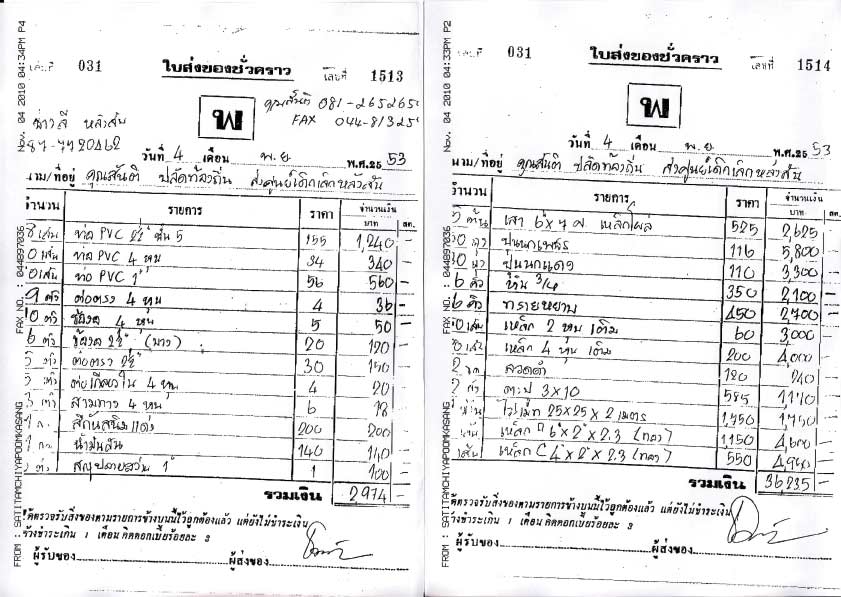 Nov. 04 2010 04:34PM P4
FAX NO. : 044897036
FROM : SATITAMCHIYAPOOMKASANG
031
ใบส่งของชั่วคราว
เลขที่ 1513
คุณสันติ 081-265265
FAX 044-81325
พ
วันที่ 4 เดือน พ.ย. พ.ศ.25 53
นาม/ที่อยู่ คุณสันติ ปลัดท้องถิ่น ส่งศูนย์เด็กเล็กหลังสัน
จำนวน รายการ ราคา จำนวนเงิน
บาท สต.
8 เส้น ท่อ PVC 2½" ชั้น 5 155 1,240 -
0 เส้น ท่อ PVC 4 หุน 34 340 -
0 เส้น ท่อ PVC 1" 56 560 -
9 ตัว ต่อตรง 4 หุน 4 36 -
10 ตัว ข้องอ 4 หุน 5 50 -
6 ตัว ข้องอ 2½" (บาง) 20 120
5 ตัว ต่อตรง 2½" 30 150
5 ตัว ต่อเกลียวใน 4 หุน 4 20
3 ตัว สามทาง 4 หุน 6 18
1 สีกันสนิมแดง 200 200
1 น้ำมันสน 140 140
1" 1 100
รวมเงิน 2974 -
ได้ตรวจรับสิ่งของตามรายการข้างบนนี้ไว้ถูกต้องแล้ว แต่ยังไม่ชำระเงิน
ค้างชำระเกิน 1 เดือน คิดดอกเบี้ยร้อยละ 3
ผู้รับของ ผู้ส่งของ
Nov. 04 2010 04:33PM P2
FAX NO. : 044897036
FROM : SATITAMCHIYAPOOMKASANG
031
ใบส่งของชั่วคราว
เลขที่ 1514
พ
วันที่ 4 เดือน พ.ย. พ.ศ.25 53
นาม/ที่อยู่ คุณสันติ ปลัดท้องถิ่น ส่งศูนย์เด็กเล็กหลังสัน
จำนวน รายการ ราคา จำนวนเงิน
บาท สต.
5 ต้น เสา 6"x7 ศ เหล็กโผล่ 525 2,625
0 ถุง ปูนนกเพชร 116 5,800
30 ถุง ปูนนกแดง 110 3,300
6 คิว หิน 3/4 350 2,100
6 คิว ทรายหยาบ 450 2,700
0 เส้น เหล็ก 2 หุน เต็ม 60 3,000
0 เส้น เหล็ก 4 หุน เต็ม 200 4,000
2 ลวดดำ 120 240
2 ตะปู 3x10 585 1,170
25x25x2 เมตร 1,750 1,750
เหล็ก 6"x2"x2.3 (ทลว) 1,150 4,600
เส้น เหล็ก C 4"x2"x2.3 (ทลว) 550 4,950
รวมเงิน 36,235 -
ได้ตรวจรับสิ่งของตามรายการข้างบนนี้ไว้ถูกต้องแล้ว แต่ยังไม่ชำระเงิน
ค้างชำระเกิน 1 เดือน คิดดอกเบี้ยร้อยละ 3
ผู้รับของ ผู้ส่งของ